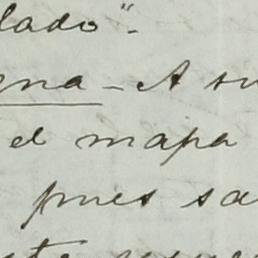 lado".
ena - A su
el mapa
pues sa